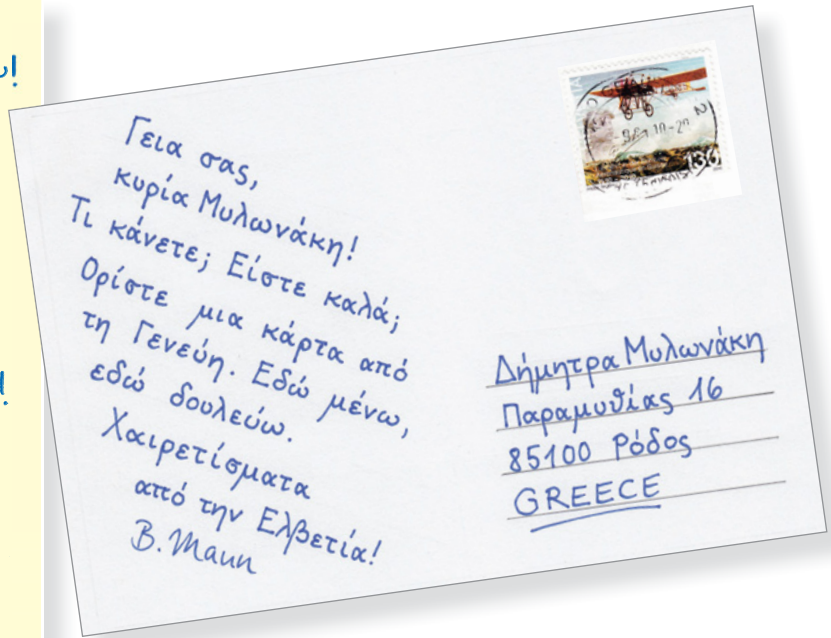 Γεια σας,
κυρία Μυλωνάκη!
Τι κάνετε; Είστε καλά;
Ορίστε μια κάρτα από
τη Γενεύη. Εδώ μένω,
εδώ δουλεύω.
Χαιρετίσματα
από την Ελβετία!
B. Mann
130
Δήμητρα Μυλωνάκη
Παραμυθίας 16
85100 Ρόδος
GREECE